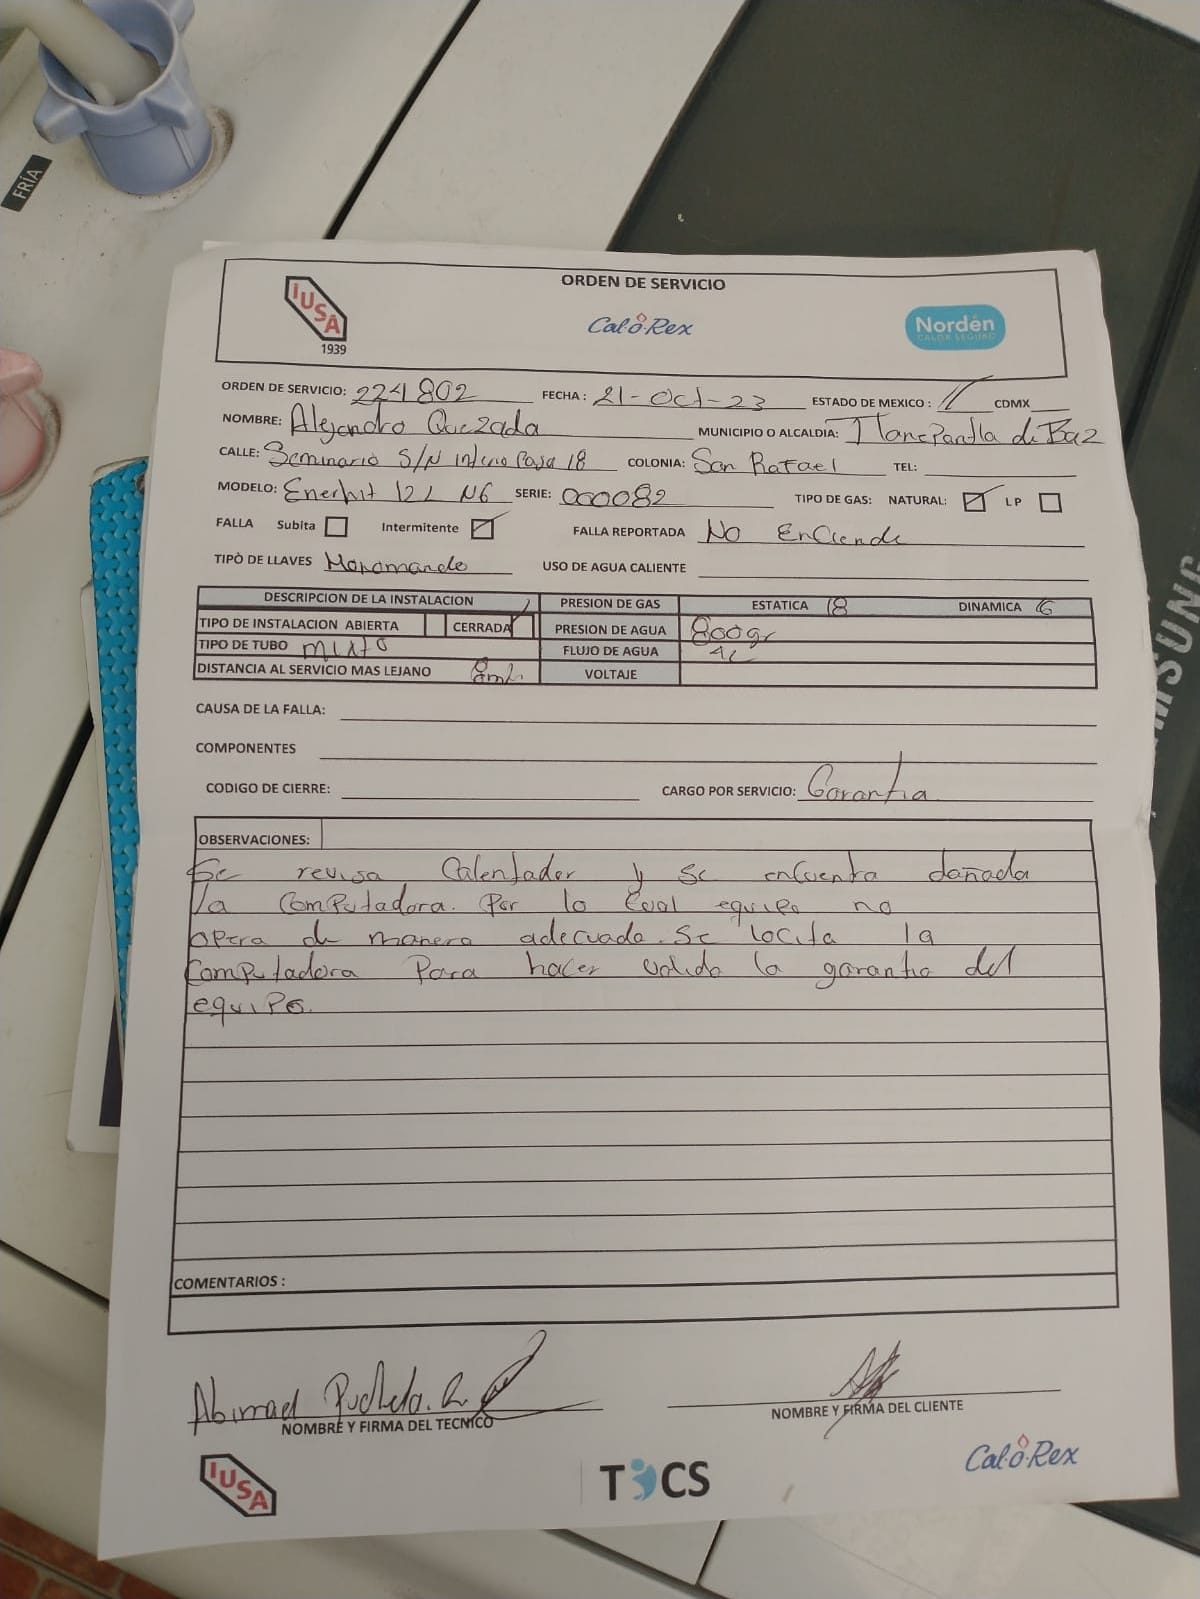 FRÍA
ORDEN DE SERVICIO
IUSA
1939
Cal-o-Rex
Nordén
CALOR SEGURO
ORDEN DE SERVICIO: 224802 FECHA: 21-Oct-23 ESTADO DE MEXICO: CDMX
NOMBRE: Alejandro Quezada MUNICIPIO O ALCALDIA: TlanePantla de Baz
CALLE: Seminario S/N interio Casa 18 COLONIA: San Rafael TEL:
MODELO: Enerhit 12L NG SERIE: 000082 TIPO DE GAS: NATURAL: LP
FALLA Subita Intermitente FALLA REPORTADA No EnCiende
TIPÒ DE LLAVES Monomando USO DE AGUA CALIENTE
DESCRIPCION DE LA INSTALACION PRESION DE GAS ESTATICA 18 DINAMICA 16
TIPO DE INSTALACION ABIERTA CERRADA PRESION DE AGUA 800gr
TIPO DE TUBO mixto FLUJO DE AGUA 4L
DISTANCIA AL SERVICIO MAS LEJANO VOLTAJE
CAUSA DE LA FALLA:
COMPONENTES
CODIGO DE CIERRE: CARGO POR SERVICIO: Garantia
OBSERVACIONES:
Se revisa Calentador y se encuentra dañada
la Computadora. Por lo Cual equipo no
opera de manera adecuada. Se locita la
Computadora Para hacer valida la garantia del
equipo.
COMENTARIOS :
Abimael
NOMBRE Y FIRMA DEL TECNICO
NOMBRE Y FIRMA DEL CLIENTE
IUSA
TICS
Cal-o-Rex
SAMSUNG